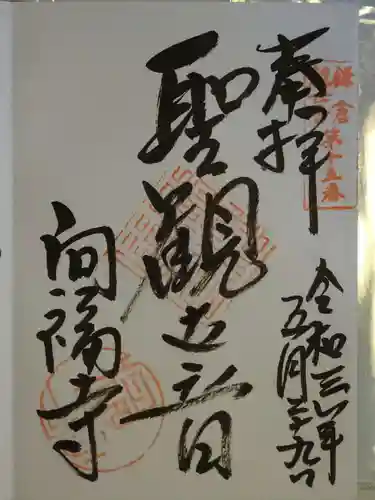 鎌倉第十五番
奉拝
令和三年
五月二十九日
聖觀世音
向福寺